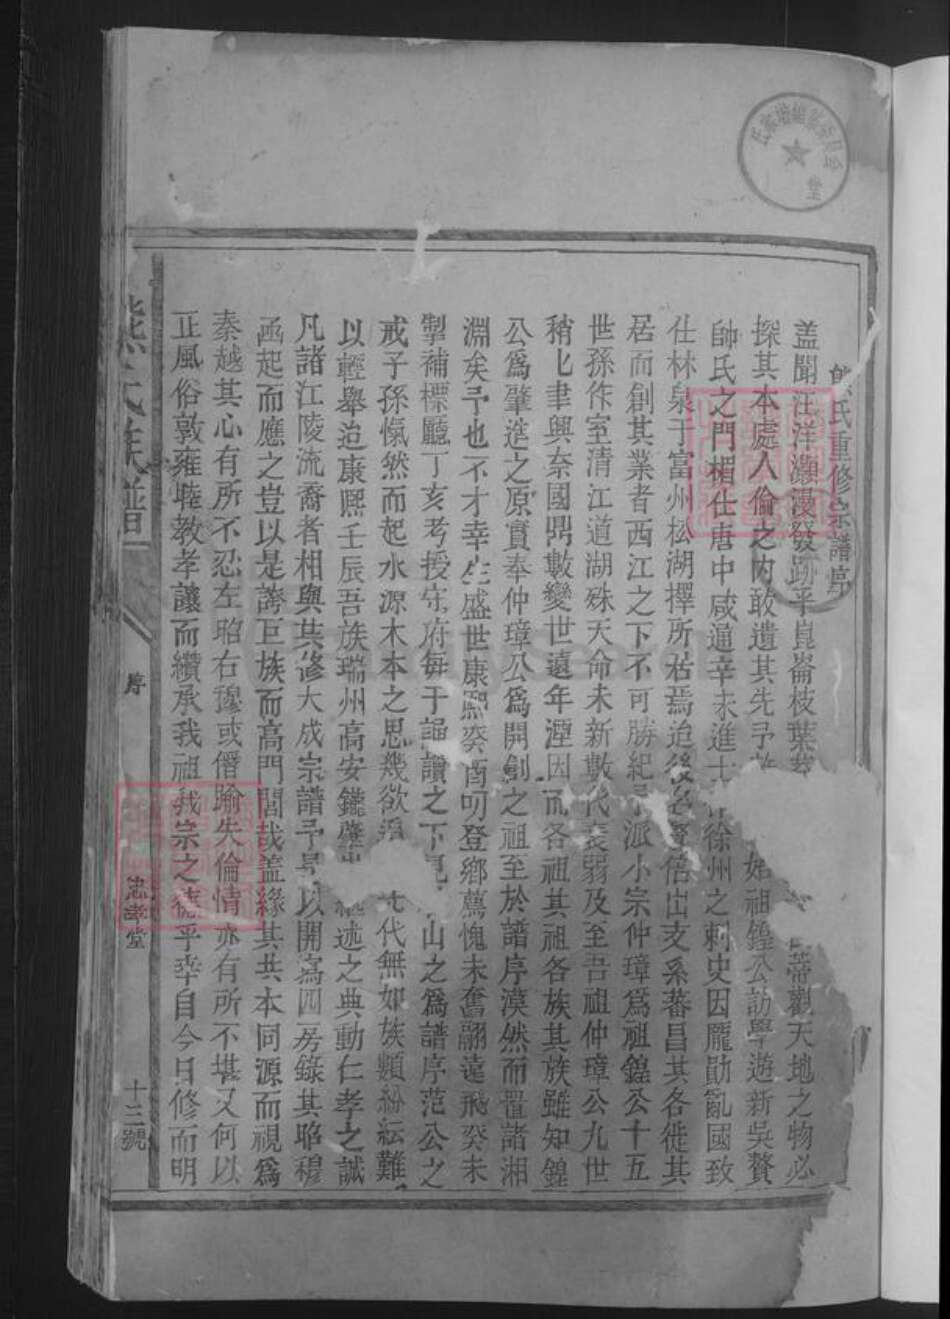 熊氏重修宗譜序
蓋聞汪洋灝漫發跡乎崑崙枝葉 蒂觀天地之物必
探其本處人倫之內敢遺其先予 始祖鍠公訪學遊新吳贅
帥氏之門楣仕唐中咸通辛未進士 徐州之刺史因龐勛亂國致
仕林泉于富州松湖擇所居焉迨後 倍出支系蕃昌其各徙其
居而創其業者西江之下不可勝紀 派小宗仲璋爲祖鍠公十五
世孫作室清江道湖殊天命未新數代衰弱及至吾祖仲璋公九世
稍七聿興奈國界數變世遠年湮因而各祖其祖各族其族雖知鍠
公爲肇造之原實奉仲璋公爲開創之祖至於譜序漠然而置諸湘
淵矣予也不才幸生盛世康熙癸酉叨登鄉薦愧未奮翮遠飛癸未
掣補標廳丁亥考授守府每于誦讀之下見 山之爲譜序范公之
戒子孫愾然而起水源木本之思幾欲 代無如族類紛紜難
以輕舉迨康熙壬辰吾族瑞州高安 述之典動仁孝之誠
凡諸江陵流裔者相與共修大成宗譜予 以開寫四房錄其昭穆
亟起而應之豈以是誇巨族而高門閭哉蓋緣其共本同源而視爲
秦越其心有所不忍左昭右穆或僭踰失倫情亦有所不堪又何以
正風俗敦雍睦教孝讓而纘承我祖我宗之德乎幸自今日修而明
熊氏族譜
序
忠孝堂
十三號